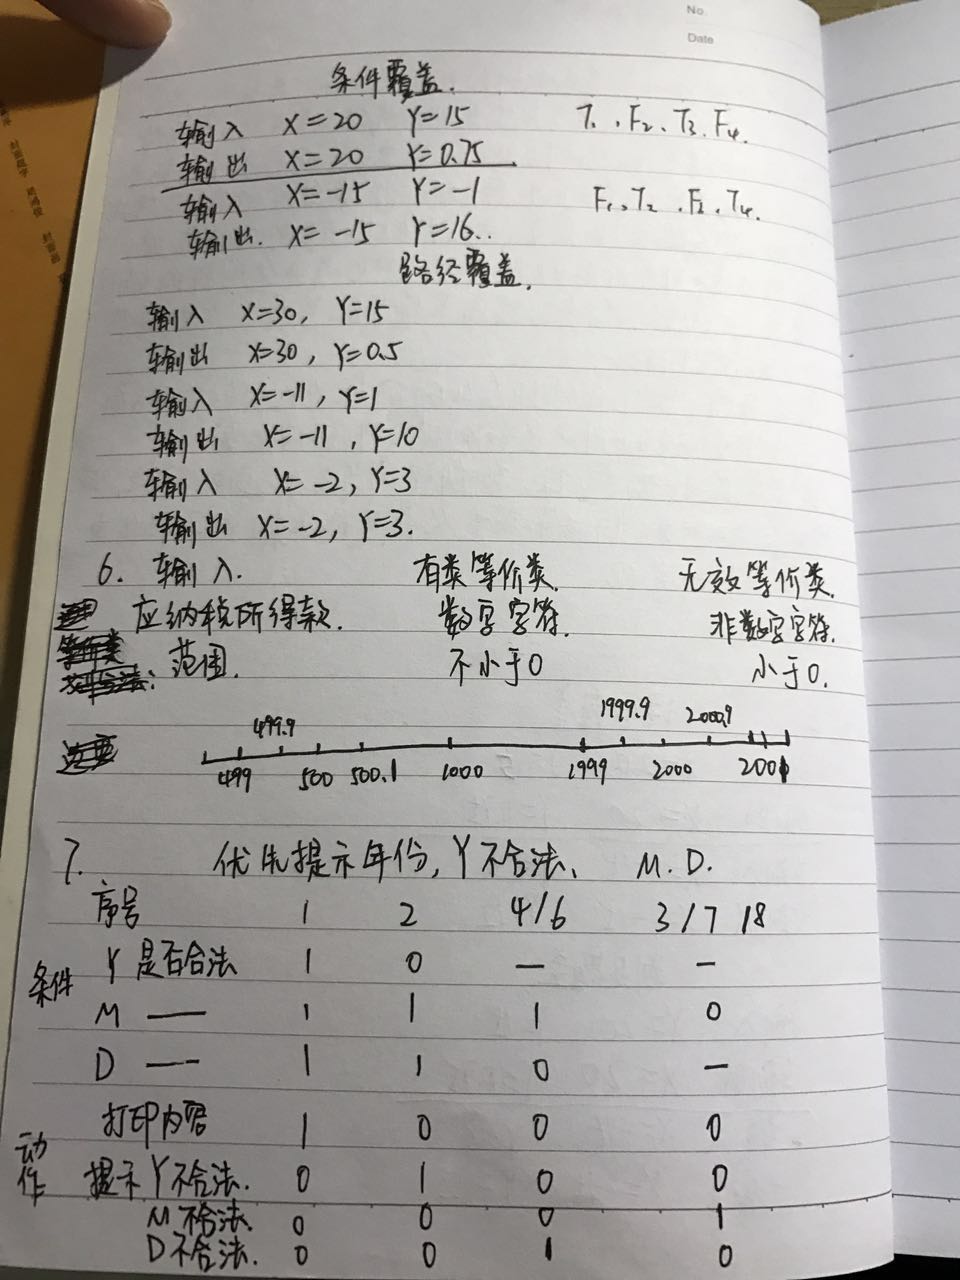 No.
Date
条件覆盖.
输入 X=20 Y=15 T1、F2、T3、F4.
输出 X=20 Y=0.75
输入 X=-15 Y=-1 F1、T2、F3、T4.
输出. X=-15 Y=16..
路径覆盖.
输入 X=30, Y=15
输出 X=30, Y=0.5
输入 X=-11, Y=1
输出 X=-11, Y=10
输入 X=-2, Y=3
输出 X=-2, Y=3.
6. 输入. 有类等价类 无效等价类.
应纳税所得款. 数字字符. 非数字字符.
范围. 不小于0 小于0.
499.9 1999.9 2000.9
499 500 500.1 1000 1999 2000 2001
7. 优先提示年份, Y不合法、 M. D.
序号 1 2 4/6 3/7 18
条件 Y是否合法 1 0 — —
M —— 1 1 1 0
D —— 1 1 0 —
打印内容 1 0 0 0
动作 提示Y不合法. 0 1 0 0
M不合法. 0 0 0 1
D不合法. 0 0 1 0